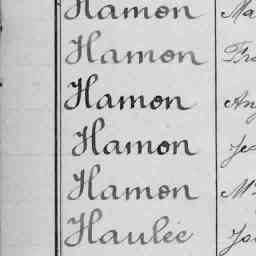 Hamon Ma
Hamon Fra
Hamon An
Hamon Je
Hamon M
Haulée Ja